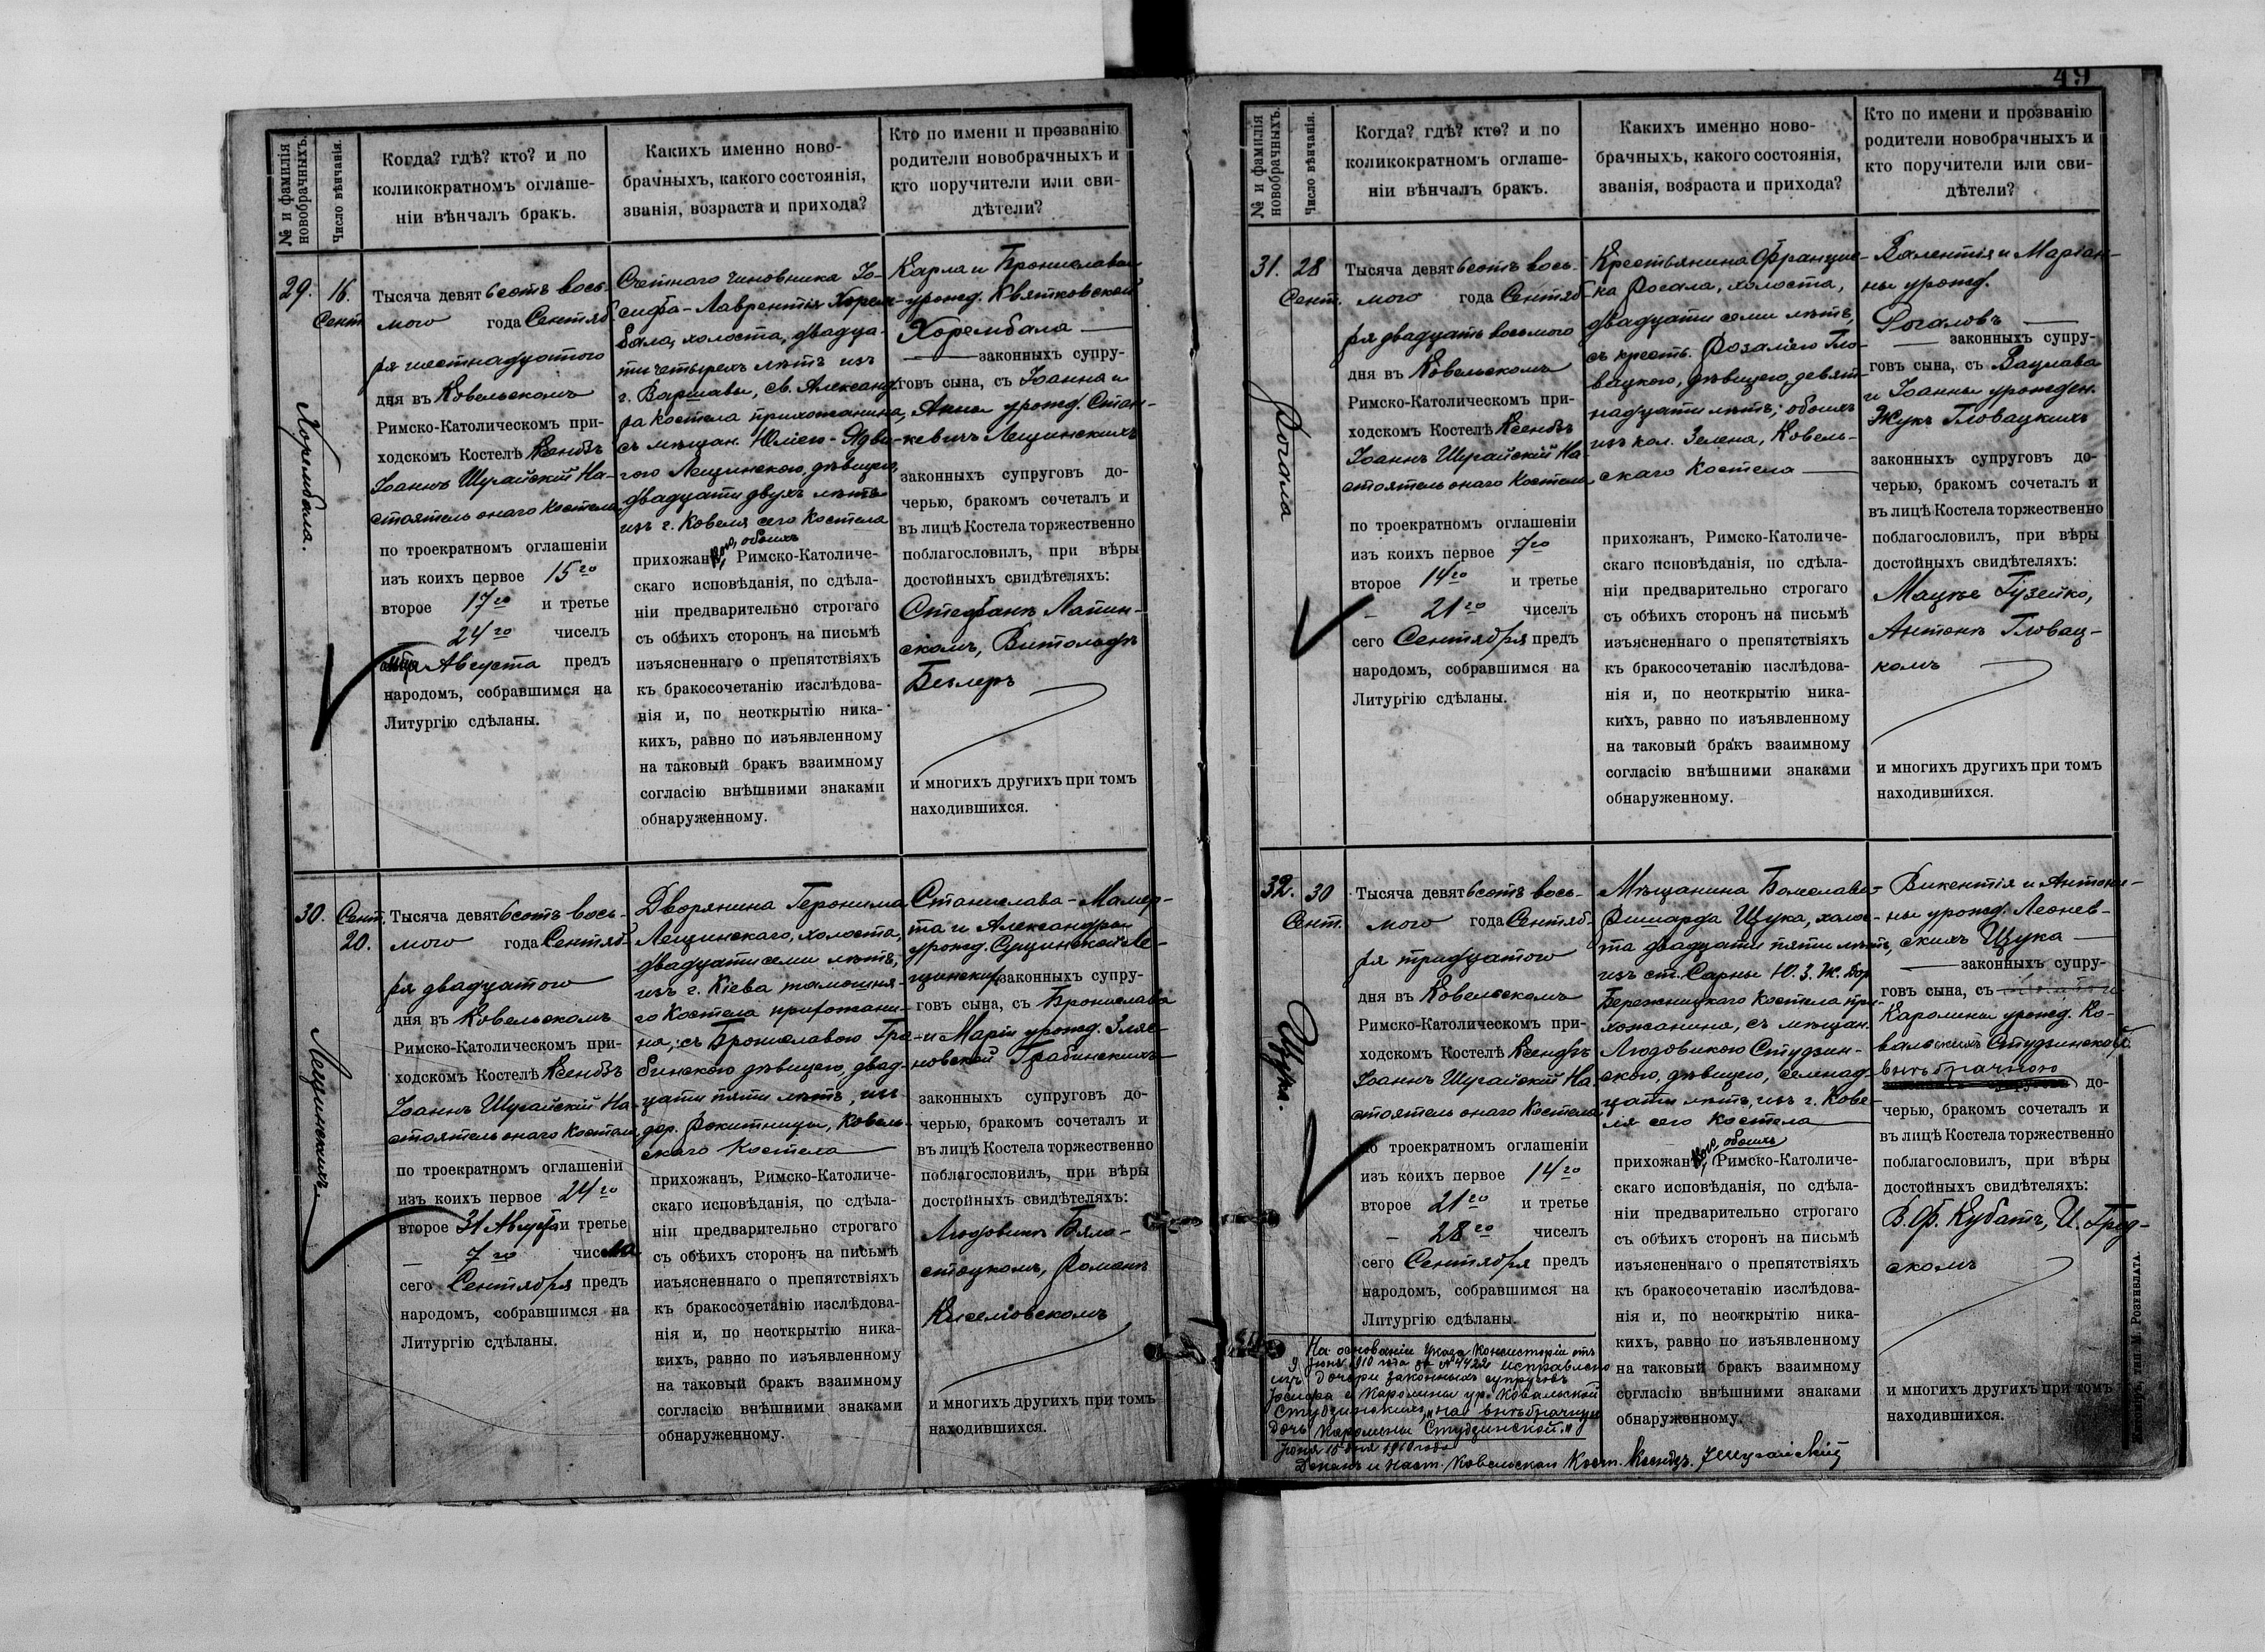 № и фамилія
новобрачныхъ.
Число вѣнчанія.
Когда? гдѣ? кто? и по
коликократномъ оглаше-
ніи вѣнчалъ бракъ.
Какихъ именно ново-
брачныхъ, какого состоянія,
званія, возраста и прихода?
Кто по имени и прозванію
родители новобрачныхъ и
кто поручители или сви-
дѣтели?
29.
Хорембала.
16.
Сент.
Тысяча девятьсотъ вось-
мого года Сентяб-
ря шестнадцатого
дня въ Ковельскомъ
Римско-Католическомъ при-
ходскомъ Костелѣ Ксендзъ
Іоаннъ Шугайскій На-
стоятель онаго Костела
по троекратномъ оглашеніи
изъ коихъ первое 15го
второе 17го и третье
24го чиселъ
Августа предъ
народомъ, собравшимся на
Литургію сдѣланы.
Счетного чиновника Іо-
сифа-Лаврентія Хорем-
бала, холоста, двадца-
ти четырехъ лѣтъ изъ
г. Варшавы, св. Александ-
ра Костела прихожанина,
съ мѣщан. Юліею-Ядви-
гою Лещинскою, дѣвицею,
двадцати двухъ лѣтъ
изъ г. Ковеля сего Костела
прихожанкою, обоихъ Римско-Католиче-
скаго исповѣданія, по сдѣла-
ніи предварительно строгаго
съ обѣихъ сторонъ на письмѣ
изъясненнаго о препятствіяхъ
къ бракосочетанію изслѣдова-
нія и, по неоткрытію ника-
кихъ, равно по изъявленному
на таковый бракъ взаимному
согласію внѣшними знаками
обнаруженному.
Карла и Брониславы
урожд. Квятковской
Хорембала —
— законныхъ супру-
говъ сына, съ Іоанна и
Анны урожд. Стан-
кевичъ Лещинскихъ
законныхъ супруговъ до-
черью, бракомъ сочеталъ и
въ лицѣ Костела торжественно
поблагословилъ, при вѣры
достойныхъ свидѣтеляхъ:
Стефанѣ Лапин-
скомъ, Витольдѣ
Беглеръ
и многихъ другихъ при томъ
находившихся.
30.
Лещинскій.
Сент.
20.
Тысяча девятьсотъ вось-
мого года Сентяб-
ря двадцатого
дня въ Ковельскомъ
Римско-Католическомъ при-
ходскомъ Костелѣ Ксендзъ
Іоаннъ Шугайскій На-
стоятель онаго Костела
по троекратномъ оглашеніи
изъ коихъ первое 24го
второе 31 Августа и третье
— 7го числа
сего Сентября предъ
народомъ, собравшимся на
Литургію сдѣланы.
Дворянина Геронима
Лещинскаго, холоста,
двадцати семи лѣтъ,
изъ г. Кіева тамошня-
го Костела прихожани-
на, съ Брониславою Гра-
бинскою дѣвицею, двад-
цати пяти лѣтъ, изъ
дер. Рокитницы, Ковель-
скаго Костела —
прихожанъ, Римско-Католиче-
скаго исповѣданія, по сдѣла-
ніи предварительно строгаго
съ обѣихъ сторонъ на письмѣ
изъясненнаго о препятствіяхъ
къ бракосочетанію изслѣдова-
нія и, по неоткрытію ника-
кихъ, равно по изъявленному
на таковый бракъ взаимному
согласію внѣшними знаками
обнаруженному.
Станислава-Мамер-
та и Александры
урожд. Сущинской Ле-
щинскихъ законныхъ супру-
говъ сына, съ Бронислава
и Маріи урожд.
Грабинскихъ
законныхъ супруговъ до-
черью, бракомъ сочеталъ и
въ лицѣ Костела торжественно
поблагословилъ, при вѣры
достойныхъ свидѣтеляхъ:
Людовикѣ Бяло-
стоцкомъ, Романѣ
Киселіовскомъ
и многихъ другихъ при томъ
находившихся.
49
№ и фамилія
новобрачныхъ.
Число вѣнчанія.
Когда? гдѣ? кто? и по
коликократномъ оглаше-
ніи вѣнчалъ бракъ.
Какихъ именно ново-
брачныхъ, какого состоянія,
званія, возраста и прихода?
Кто по имени и прозванію
родители новобрачныхъ и
кто поручители или сви-
дѣтели?
31.
Рогала
28
Сент.
Тысяча девятьсотъ вось-
мого года Сентяб-
ря двадцать восьмого
дня въ Ковельскомъ
Римско-Католическомъ при-
ходскомъ Костелѣ Ксендзъ
Іоаннъ Шугайскій На-
стоятель онаго Костела
по троекратномъ оглашеніи
изъ коихъ первое 7го
второе 14го и третье
— 21го чиселъ
сего Сентября предъ
народомъ, собравшимся на
Литургію сдѣланы.
Крестьянина Францис-
ка Рогала, холоста,
двадцати семи лѣтъ,
съ крест. Розаліею Гло-
вацкою, дѣвицею, девят-
надцати лѣтъ; обоихъ
изъ кол. Зелена, Ковель-
скаго Костела —
прихожанъ, Римско-Католиче-
скаго исповѣданія, по сдѣла-
ніи предварительно строгаго
съ обѣихъ сторонъ на письмѣ
изъясненнаго о препятствіяхъ
къ бракосочетанію изслѣдова-
нія и, по неоткрытію ника-
кихъ, равно по изъявленному
на таковый бракъ взаимному
согласію внѣшними знаками
обнаруженному.
Валентія и Маріан-
ны урожд.
Рогаловъ —
— законныхъ супру-
говъ сына, съ Вацлава
и Іоанны урожден.
Жукъ Гловацкихъ
законныхъ супруговъ до-
черью, бракомъ сочеталъ и
въ лицѣ Костела торжественно
поблагословилъ, при вѣры
достойныхъ свидѣтеляхъ:
Мацѣе Гузейко,
Антонѣ Гловац-
комъ
и многихъ другихъ при томъ
находившихся.
32.
Щука.
30
Сент.
Тысяча девятьсотъ вось-
мого года Сентяб-
ря тридцатого
дня въ Ковельскомъ
Римско-Католическомъ при-
ходскомъ Костелѣ Ксендзъ
Іоаннъ Шугайскій На-
стоятель онаго Костела
по троекратномъ оглашеніи
изъ коихъ первое 14го
второе 21го и третье
— 28го чиселъ
сего Сентября предъ
народомъ, собравшимся на
Литургію сдѣланы.
Мѣщанина Болеслава-
Ришарда Щука, холос-
та двадцати пяти лѣтъ,
изъ ст. Сарны Ю. З. Ж. Дор.
Бережницкаго Костела при-
хожанина, съ мѣщан.
Людовикою Студзин-
скою, дѣвицею, семнад-
цати лѣтъ, изъ г. Кове-
ля сего Костела —
прихожанкою, обоихъ Римско-Католиче-
скаго исповѣданія, по сдѣла-
ніи предварительно строгаго
съ обѣихъ сторонъ на письмѣ
изъясненнаго о препятствіяхъ
къ бракосочетанію изслѣдова-
нія и, по неоткрытію ника-
кихъ, равно по изъявленному
на таковый бракъ взаимному
согласію внѣшними знаками
обнаруженному.
Викентія и Антони-
ны урожд. Леонев-
скихъ Щука —
— законныхъ супру-
говъ сына, съ
Каролины урожд. Ко-
вальскихъ Студзинской
внѣбрачною
до-
черью, бракомъ сочеталъ и
въ лицѣ Костела торжественно
поблагословилъ, при вѣры
достойныхъ свидѣтеляхъ:
В. Ф. Кубатъ, И. Грод-
скомъ
и многихъ другихъ при томъ
находившихся.
На основаніи Указа Консисторіи отъ
9 Іюня 1910 года за №4422 исправлено
изъ дочери законныхъ супруговъ
Іосифа и Каролины ур. Ковальской
Студзинскихъ, „на внѣбрачную
дочь Каролины Студзинской."
Іюня 15 дня 1910 года
Деканъ и Наст. Ковельскаго Кост. Ксендзъ. ІШугайскій
тип. М. Розенблата.